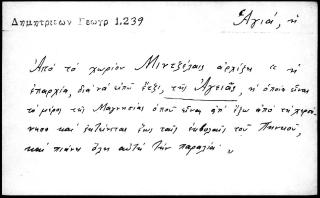 Δημητριέων Γεωγρ 1.239
Ἁγιά, ἡ
Ἀπὸ τὸ χωρίον Μιντζέλαις ἀρχίζει « ἡ
ἐπαρχία, διὰ νὰ εἰπῶ ἔτζι, τῆς Ἁγειᾶς, ἡ ὁποία εἶναι
τὸ μέρος τῆς Μαγνησίας ὁποῦ εἶναι ἀπ' ἔξω ἀπὸ τὴ χερσό-
νησο καὶ ἐκτείνεται ἕως ταῖς ἐκβολαῖς τοῦ Πηνειοῦ,
καὶ πιάνει ὅλη αὐτὴ τὴν παραλία »